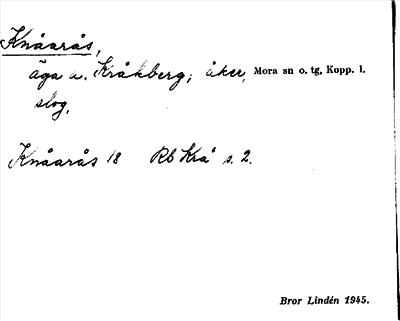 Knåarås,
äga a. Kråkberg; åker, Mora sn o. tg, Kopp. l.
slog,
Knåarås 18 Rb Krå s. 2.
Bror Lindén 1945.